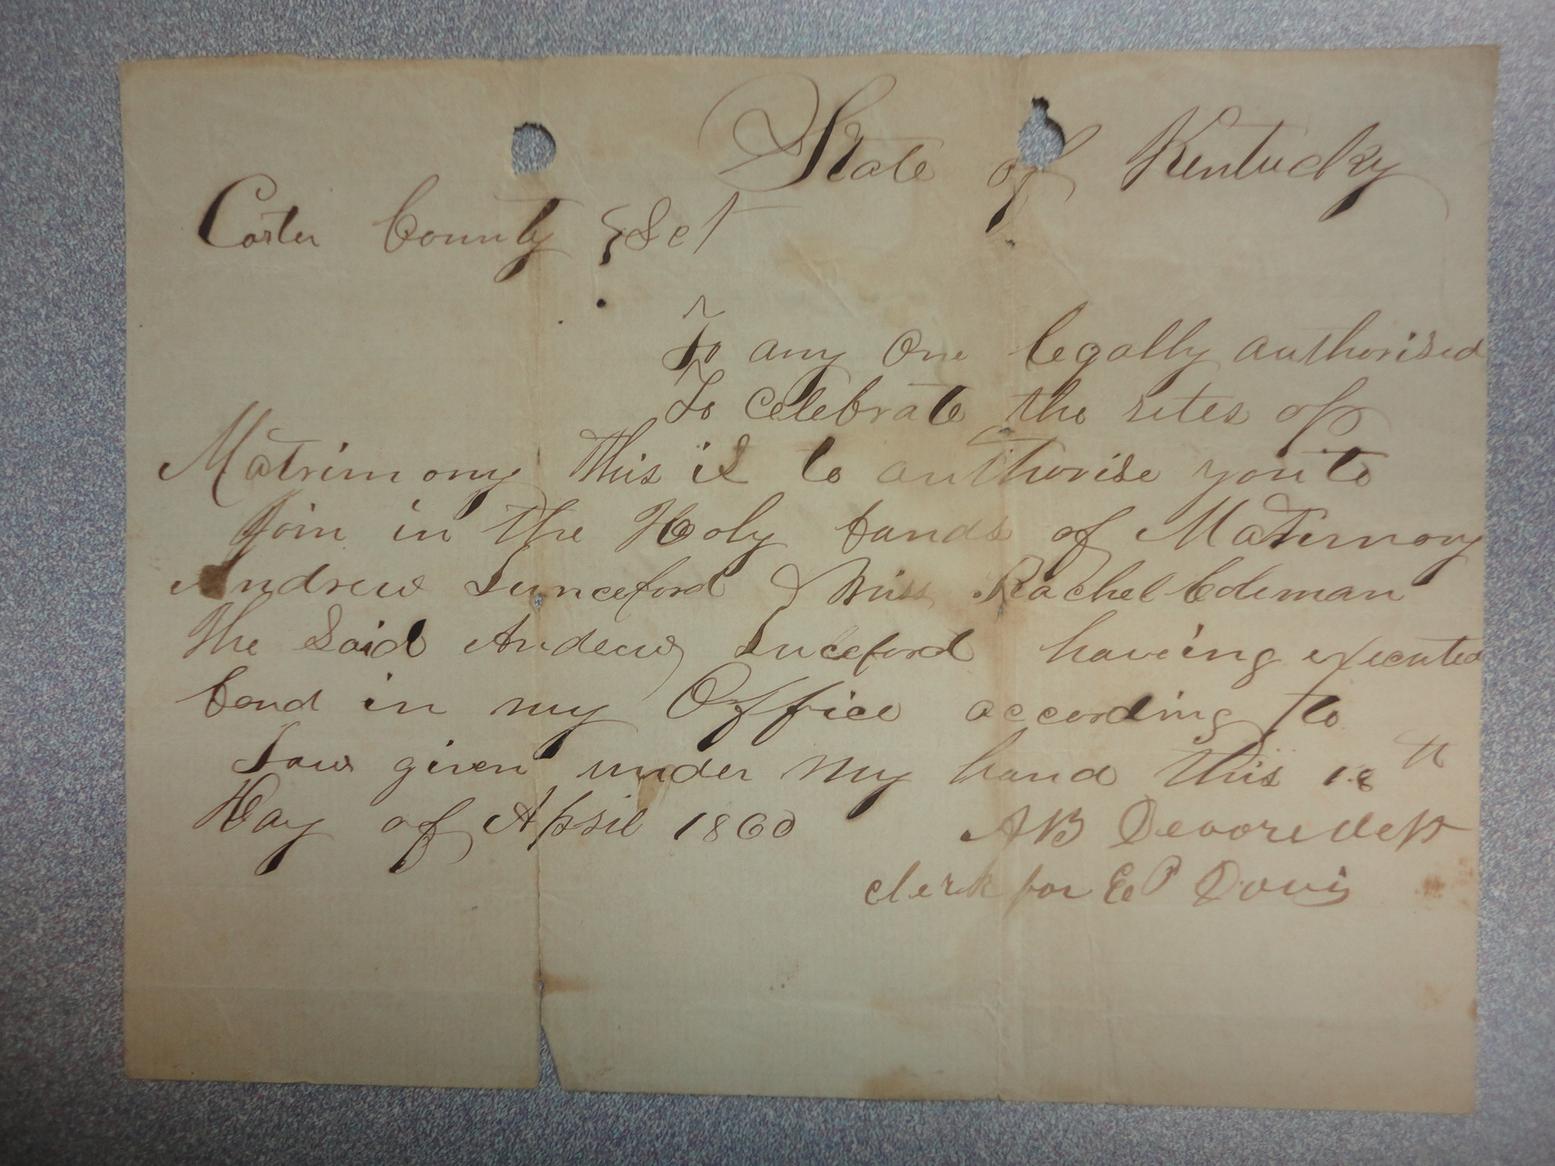 State of Kentucky
Carter County } Sct
To any One legally authorised
To Celebrate the rites of
Matrimony This is to authorise you to
Join in the Holy bands of Matrimony
Andrew Lunceford & Miss Rachel
The Said Andrew Lunceford having executed
bond in my Office according to
Law given under my hand this 18th
Day of April 1860 AB Devore Dept
clerk for E P Davis